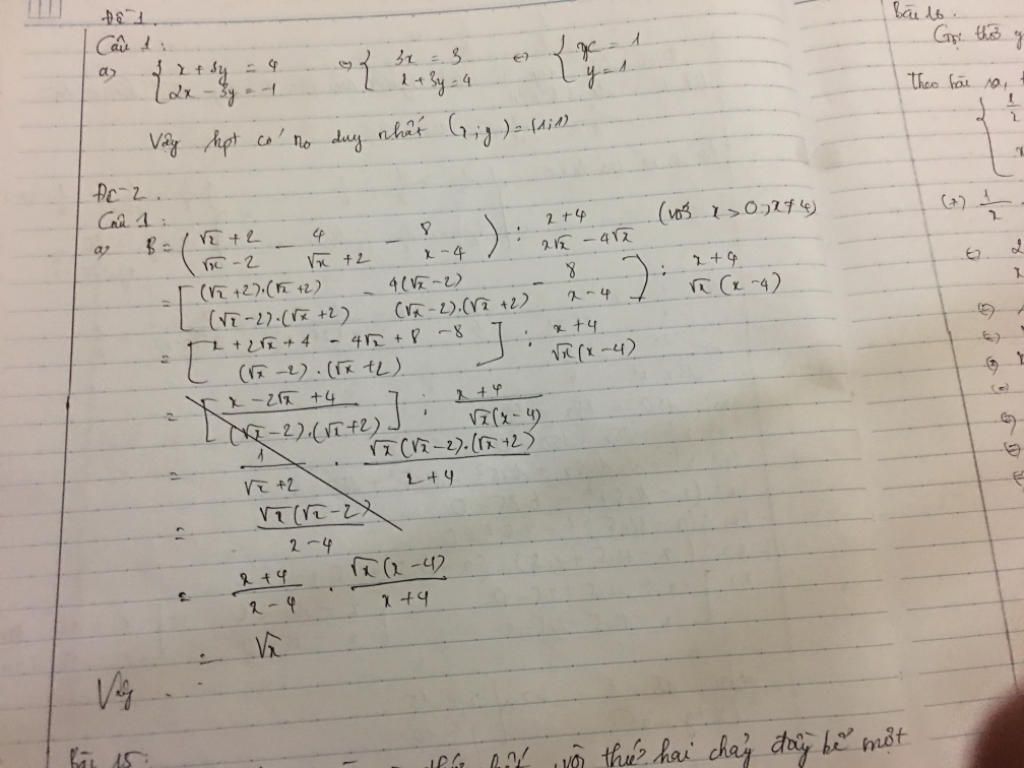 Đề 1.
Câu 1:
a) { x + 3y = 4 ⇔ { 3x = 3 ⇔ { x = 1
2x - 3y = -1 x + 3y = 4 y = 1
Vậy hpt có no duy nhất (x; y) = (1; 1)
Đề 2.
Câu 1:
a) B = ( (√x + 2)/(√x - 2) - 4/(√x + 2) - 8/(x - 4) ) : (x + 4)/(x√x - 4√x) (với x > 0; x ≠ 4)
= [ (√x + 2).(√x + 2)/(√x - 2).(√x + 2) - 4(√x - 2)/(√x - 2).(√x + 2) - 8/(x - 4) ] : (x + 4)/√x(x - 4)
= [ x + 2√x + 4 - 4√x + 8 - 8/(√x - 2).(√x + 2) ] : (x + 4)/√x(x - 4)
= [ x - 2√x + 4/(√x - 2).(√x + 2) ] : (x + 4)/√x(x - 4)
= 1/(√x + 2) . √x(√x - 2).(√x + 2)/(x + 4)
= √x(√x - 2)/(x - 4)
= (x + 4)/(x - 4) . √x(x - 4)/(x + 4)
= √x
Vậy
Bài 15:
vòi thứ hai chảy đầy bể một
Bài 16.
Gọi thời g
theo bài ra,
{ 1/2
x
(+) 1/x
⇔ 2
x